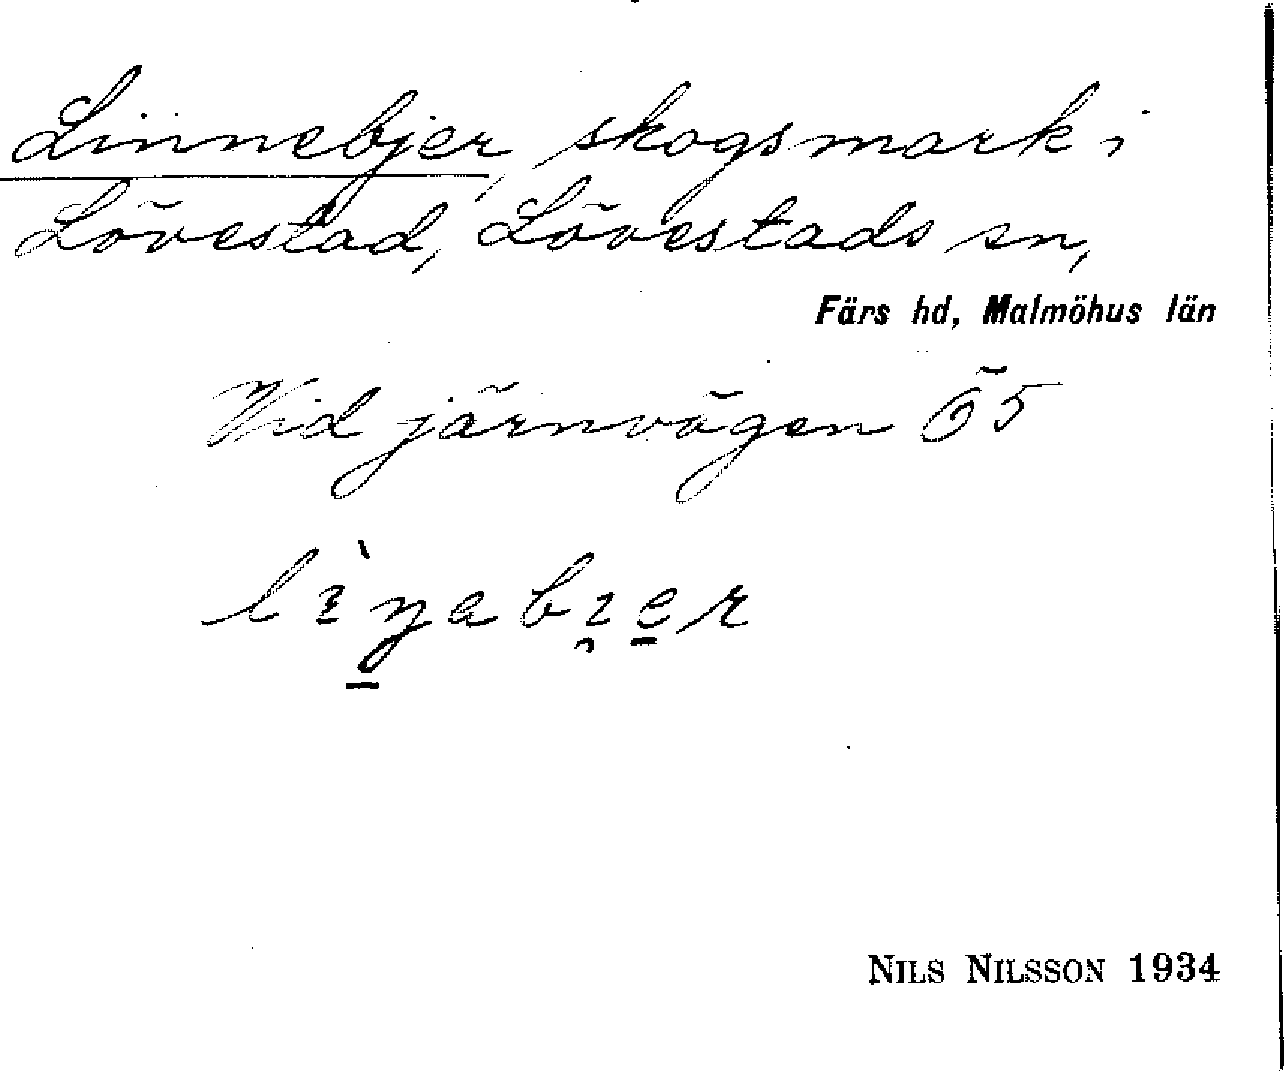 Linnebjer, skogsmark i
Lövestad, Lövestads sn,
Färs hd, Malmöhus län
Vid järnvägen Ö5
NILS NILSSON 1934